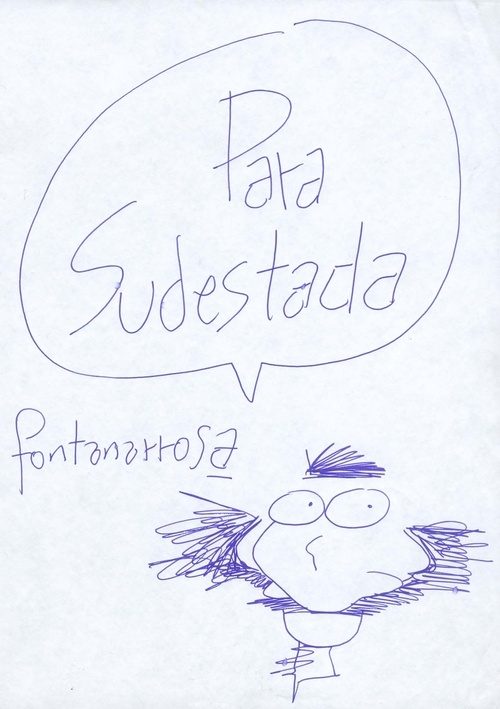 Para
Sudestada
fontanarrosa